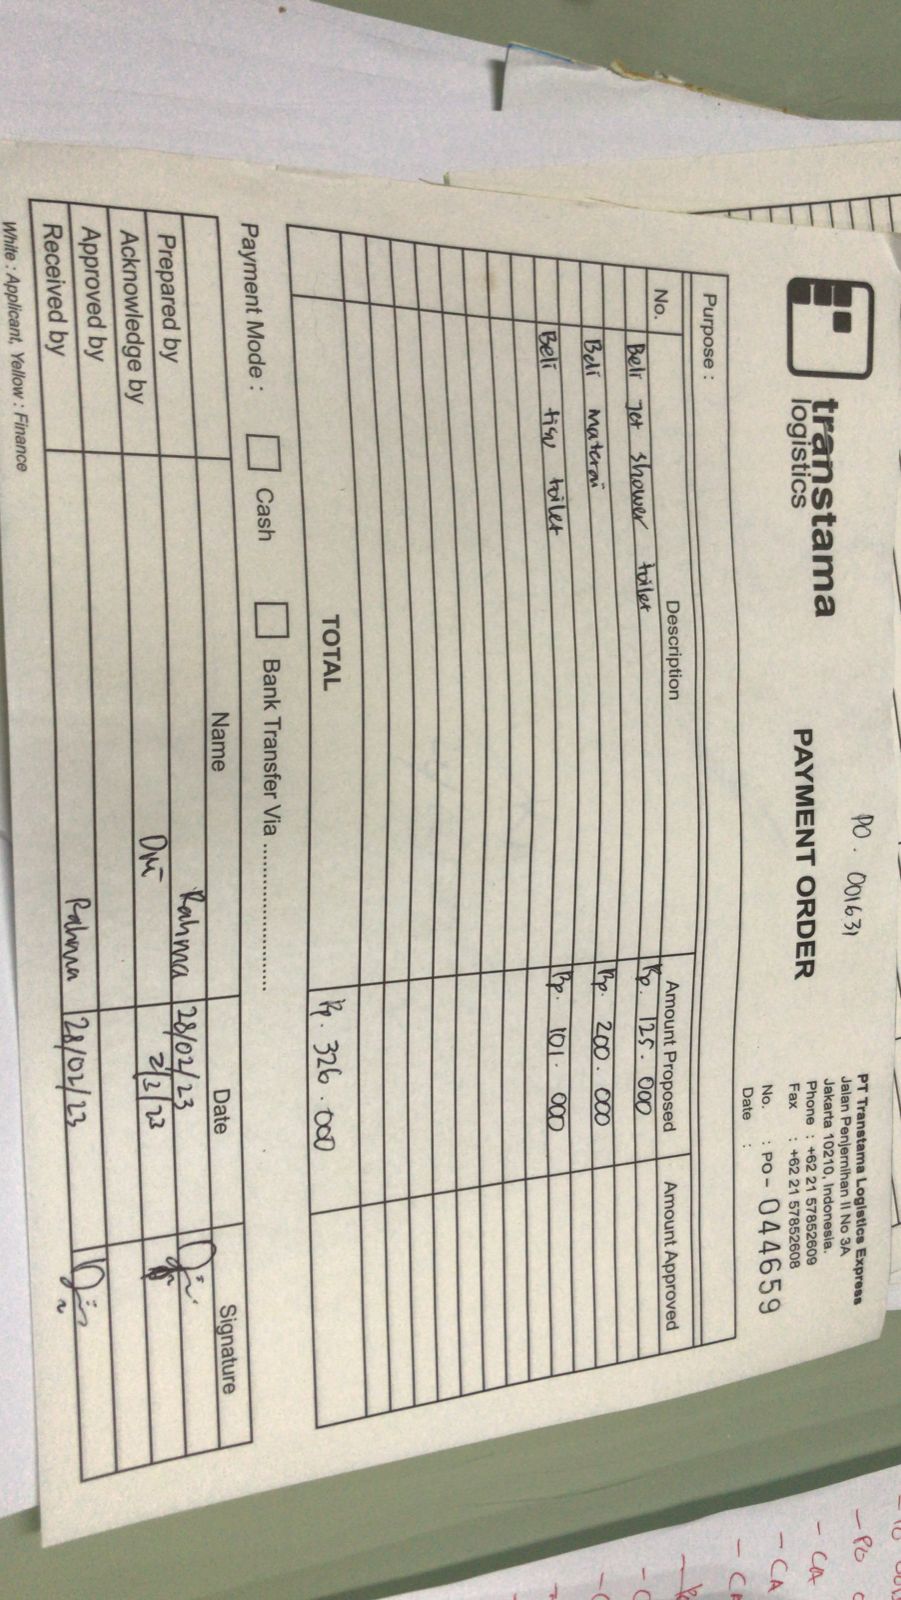 transtama
logistics
PO. 001631
PAYMENT ORDER
PT Transtama Logistics Express
Jalan Penjernihan II No 3A
Jakarta 10210, Indonesia.
Phone : +62 21 57852609
Fax : +62 21 57852608
No. : PO - 044659
Date :
Purpose :
No. Description Amount Proposed Amount Approved
Beli jet shower toilet Rp. 125.000
Beli materai Rp. 200.000
Beli tisu toilet Rp. 101.000
TOTAL Rp. 326.000
Payment Mode : Cash Bank Transfer Via ......................
Name Date Signature
Prepared by Rahma 28/02/23
Acknowledge by 2/3/23
Approved by
Received by Rahma 28/02/23
White : Applicant, Yellow : Finance
- PO
- CA
- CA
- CA